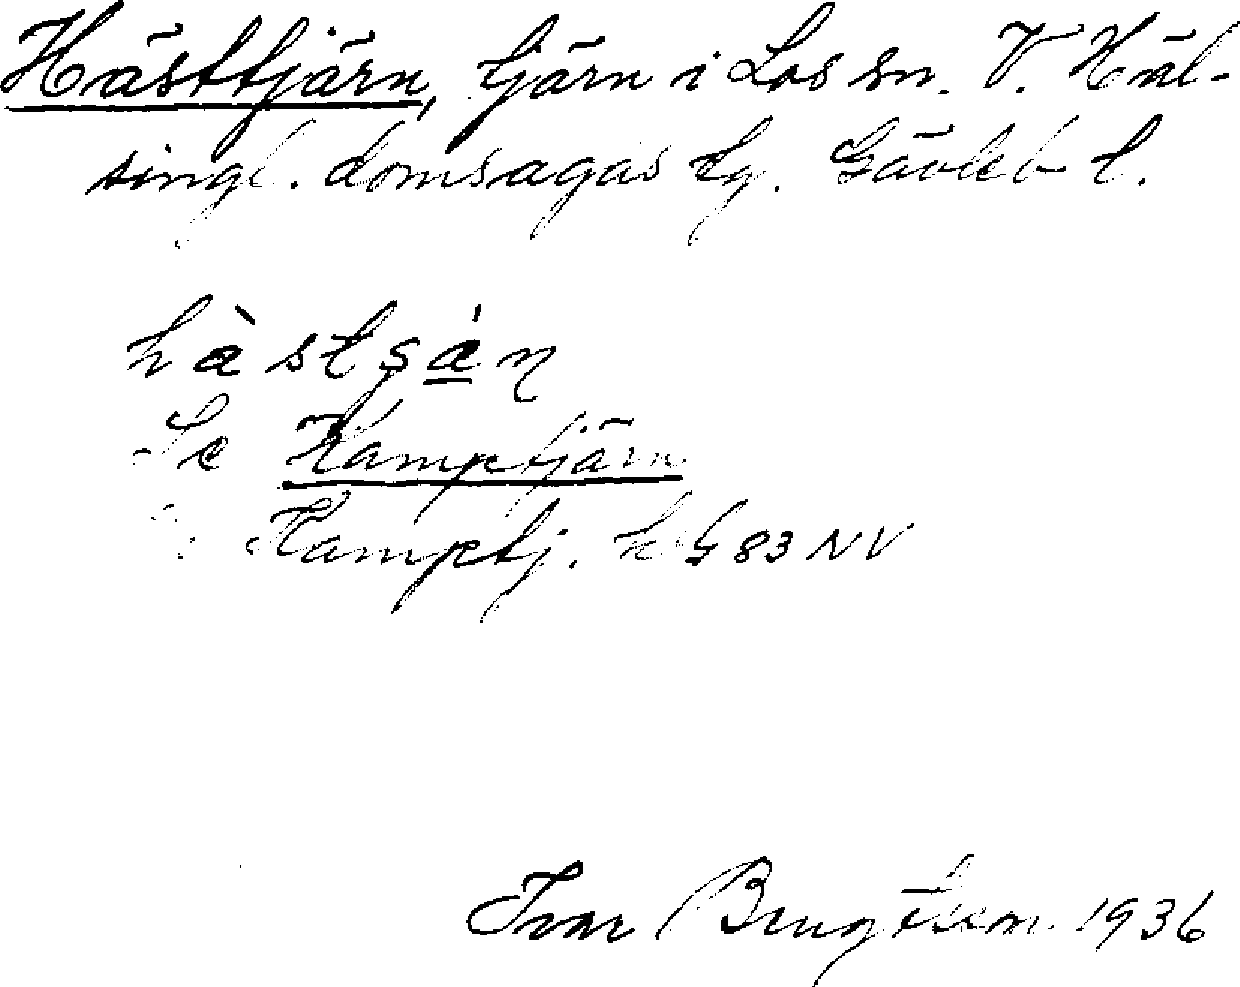 Hästtjärn, tjärn i Los sn. V. Häl-
singl. domsagas tg. Gävleb l.
hàstşá̱ṇ
Se Kamptjärn
Kamptj. k G 83 NV
Ivar 1936